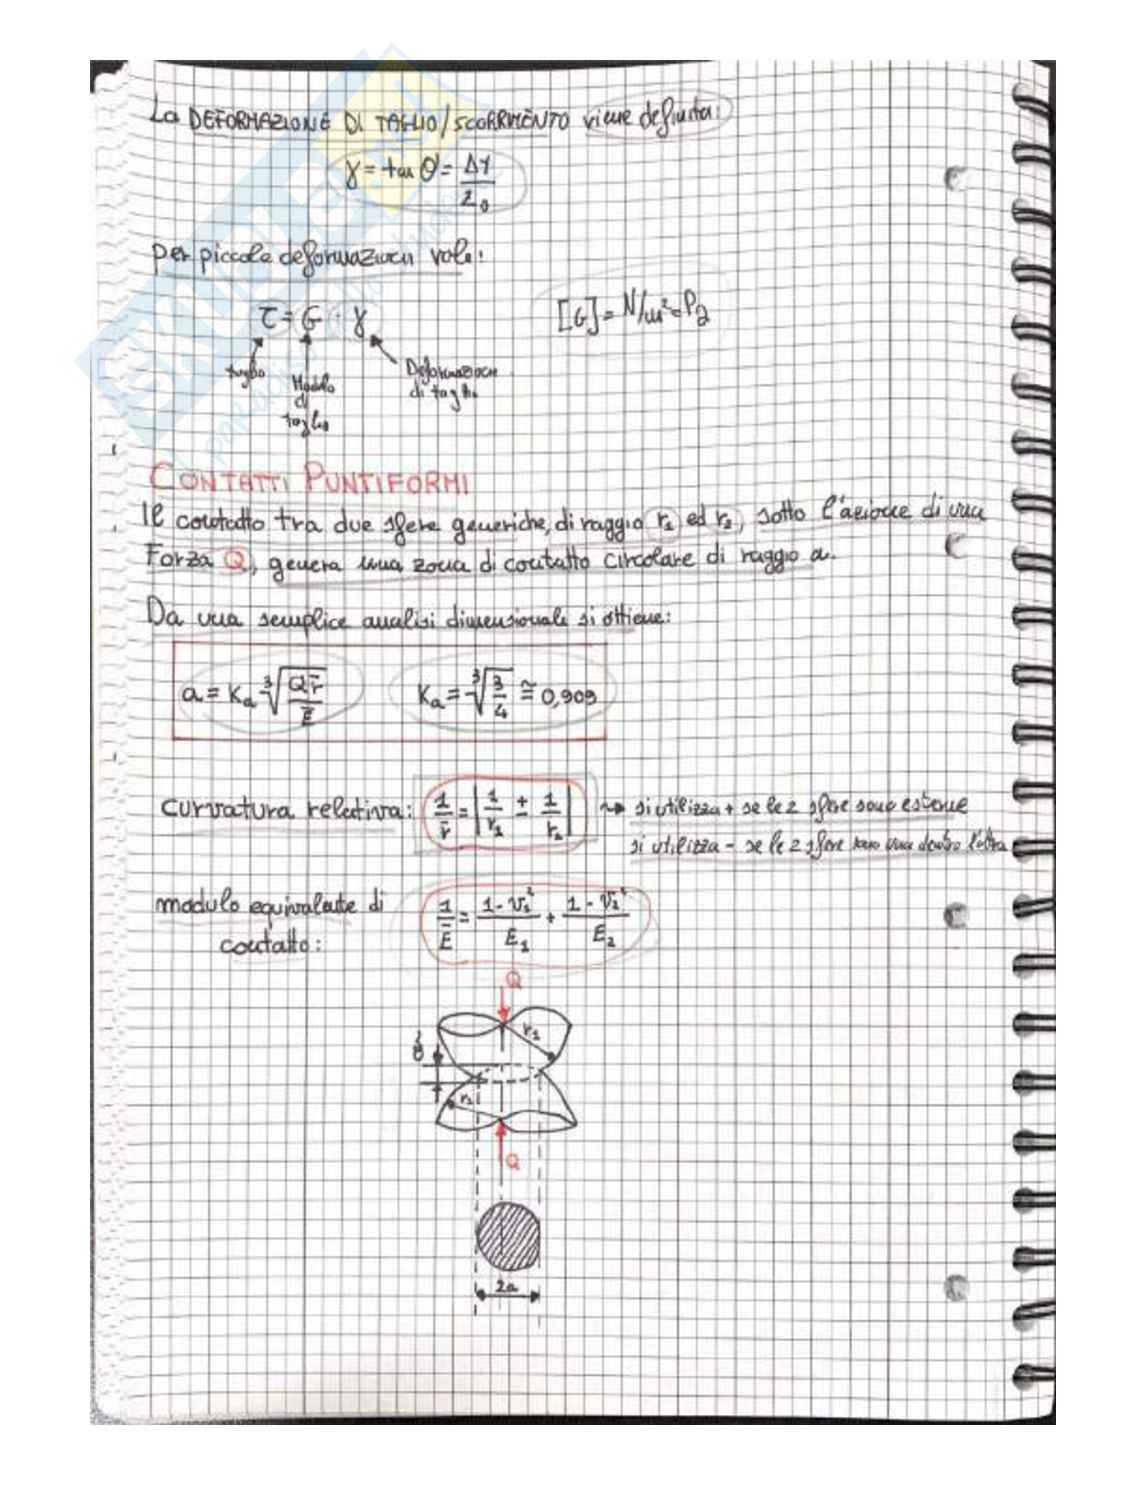 La DEFORMAZIONE DI TAGLIO/SCORRIMENTO viene definita:
γ = tan θ = Δy / z₀
per piccole deformazioni vale:
τ = G · γ
[G] = N/m² = Pa
taglio
Modulo di taglio
Deformazione di taglio
CONTATTI PUNTIFORMI
Il contatto tra due sfere generiche, di raggio r₁ ed r₂, sotto l'azione di una
Forza Q, genera una zona di contatto circolare di raggio a.
Da una semplice analisi dimensionale si ottiene:
a = Kₐ ∛(Q r̄ / Ē)    Kₐ = ∛(3/4) ≅ 0,909
curvatura relativa: 1/r̄ = |1/r₁ ± 1/r₂| ⇝ si utilizza + se le 2 sfere sono esterne
si utilizza - se le 2 sfere sono una dentro l'altra
modulo equivalente di
contatto:
1/Ē = (1-ν₁²)/E₁ + (1-ν₂²)/E₂
Q
r₂
δ
r₁
Q
2a
SKUOLA